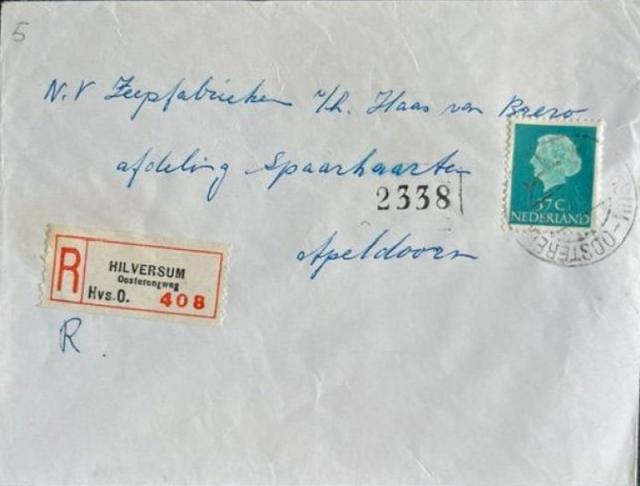 5
N.V Zeepfabrieken v/h. Haas van Brero
afdeling Spaarkaarten
2338
Apeldoorn
37C
NEDERLAND
R
HILVERSUM
Oosterengweg
Hvs.O. 408
R.